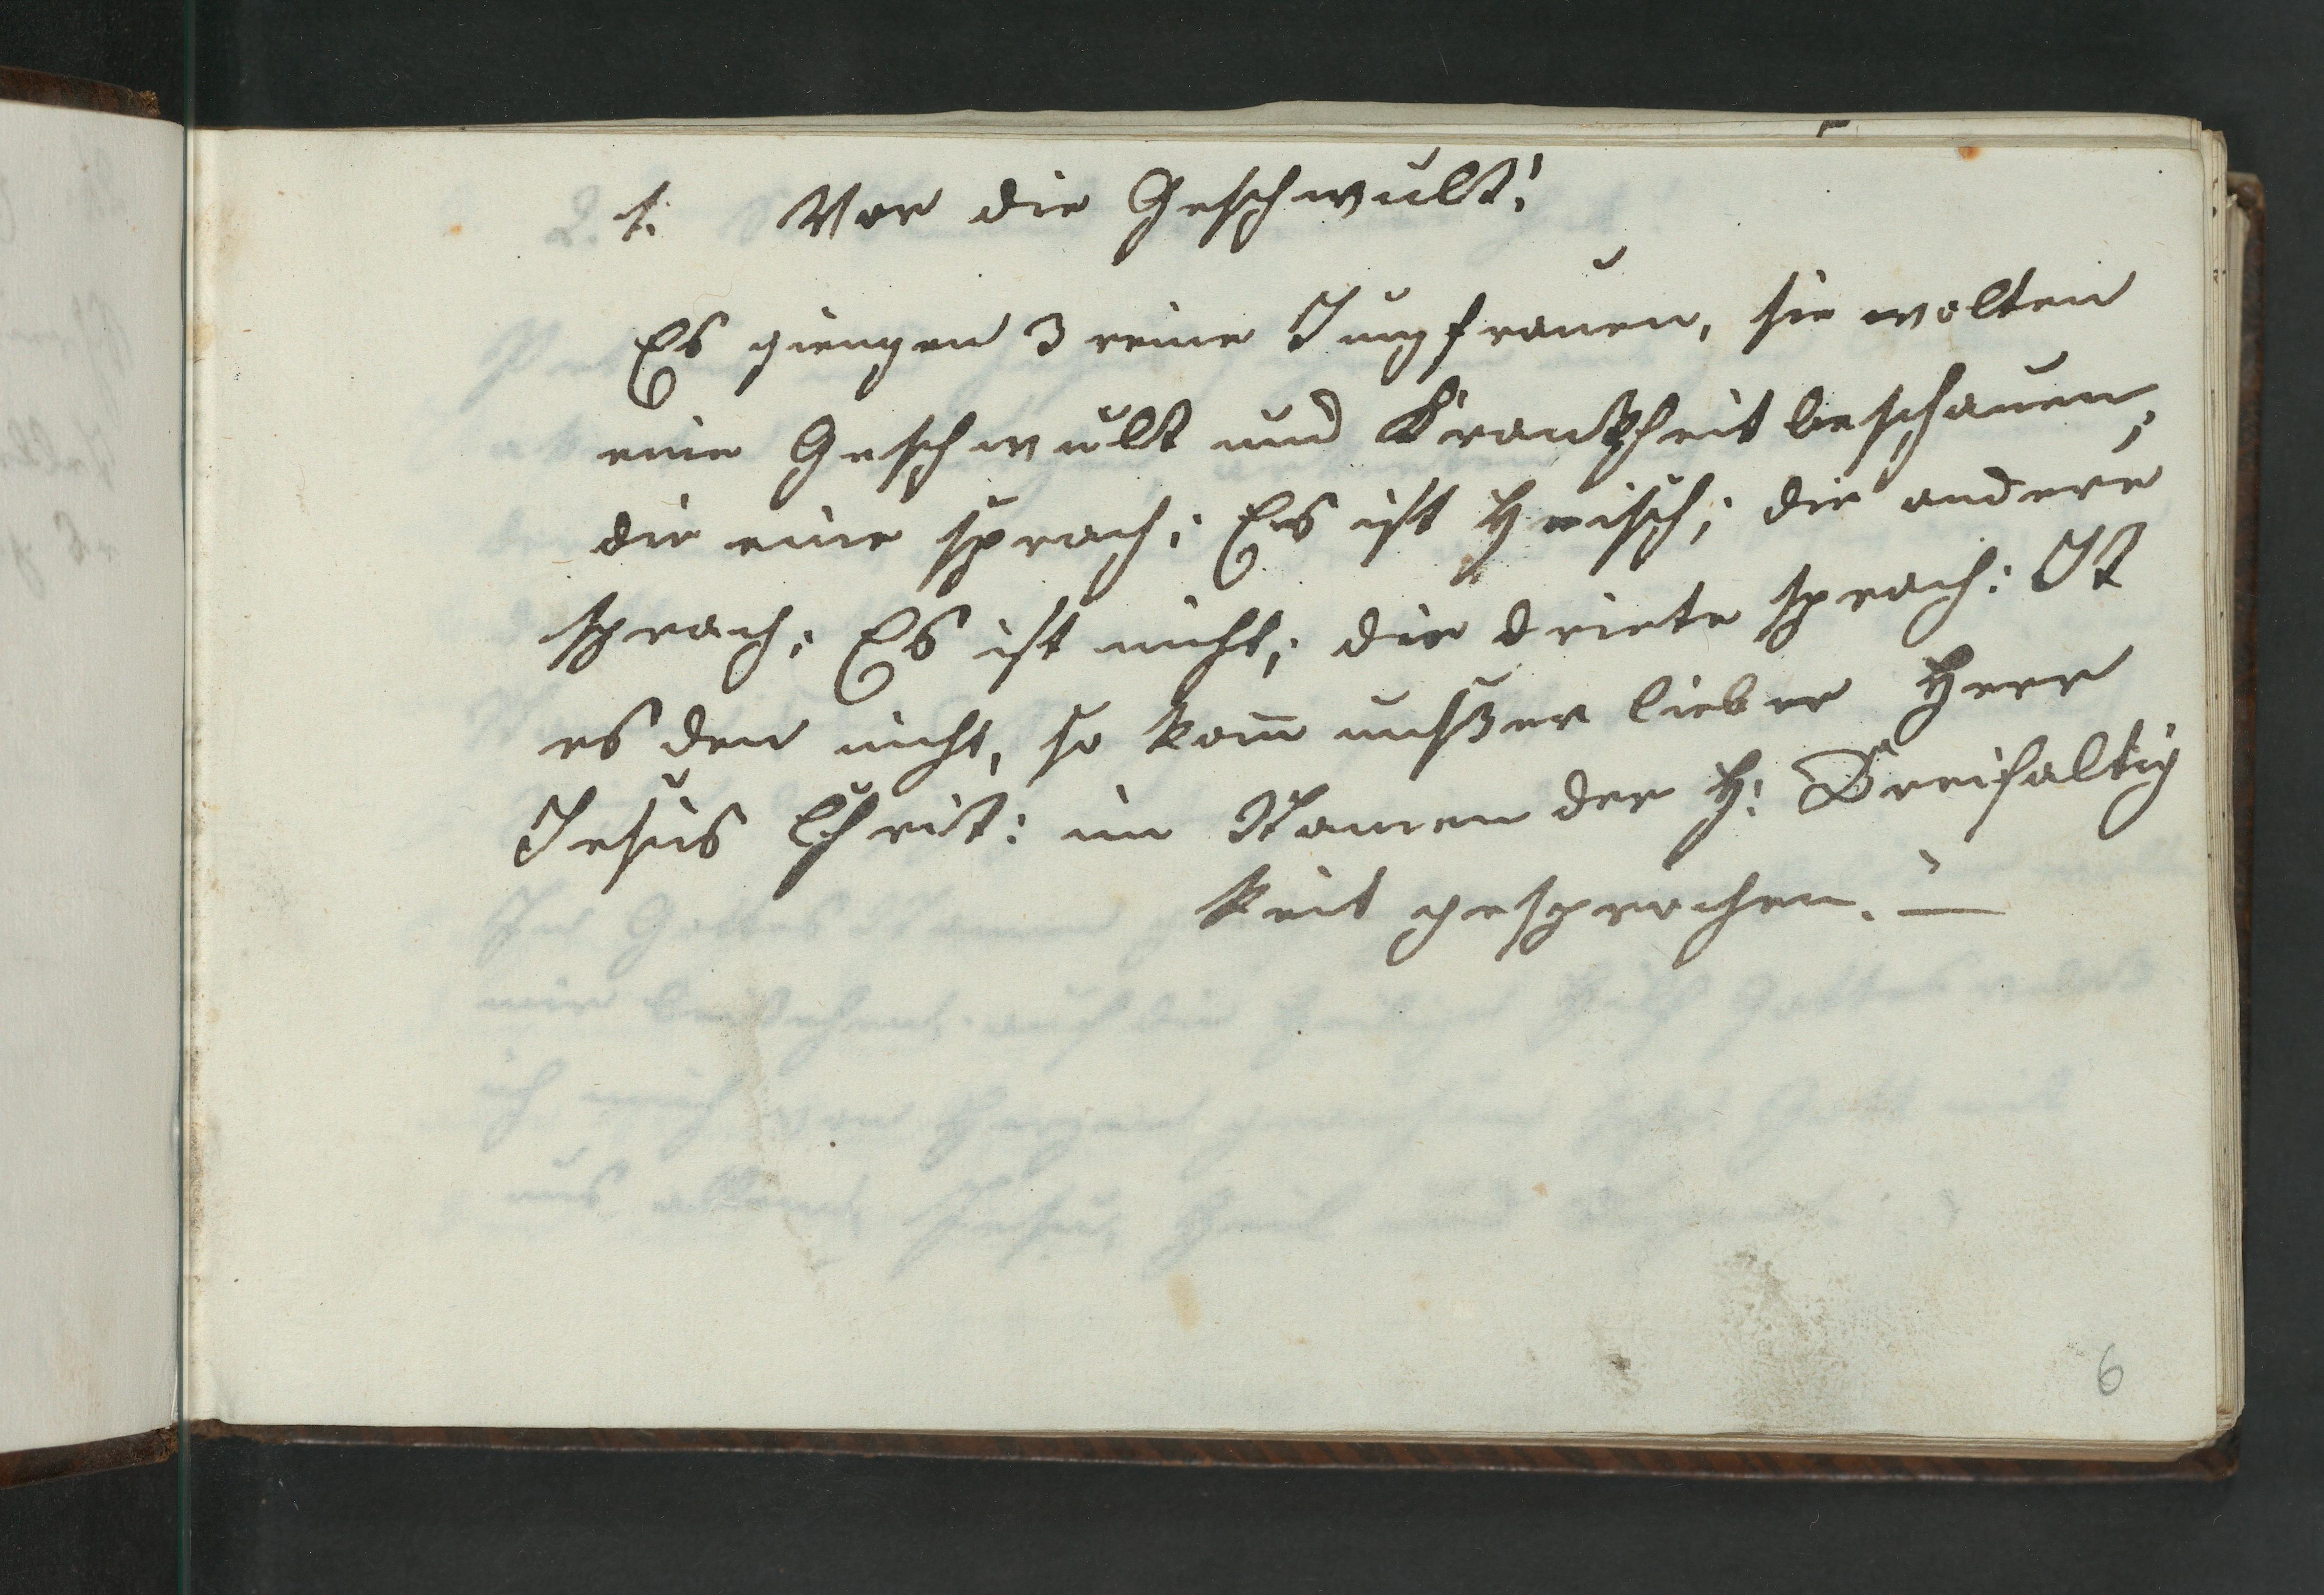 1. Vor die Geschwulst!
Es giengen 3 reine Jungfrauen, sie wolten
eine Geschwulst und Krankheit beschauen;
die eine sprach: Es ist Heisch; die andere
sprach: Es ist nicht; die driete sprach: Ist
es den nicht, so kom̄ unßer lieber Herr
Jesus Christ: im Namen der H: Dreifaltig
keit gesprochen. —
6